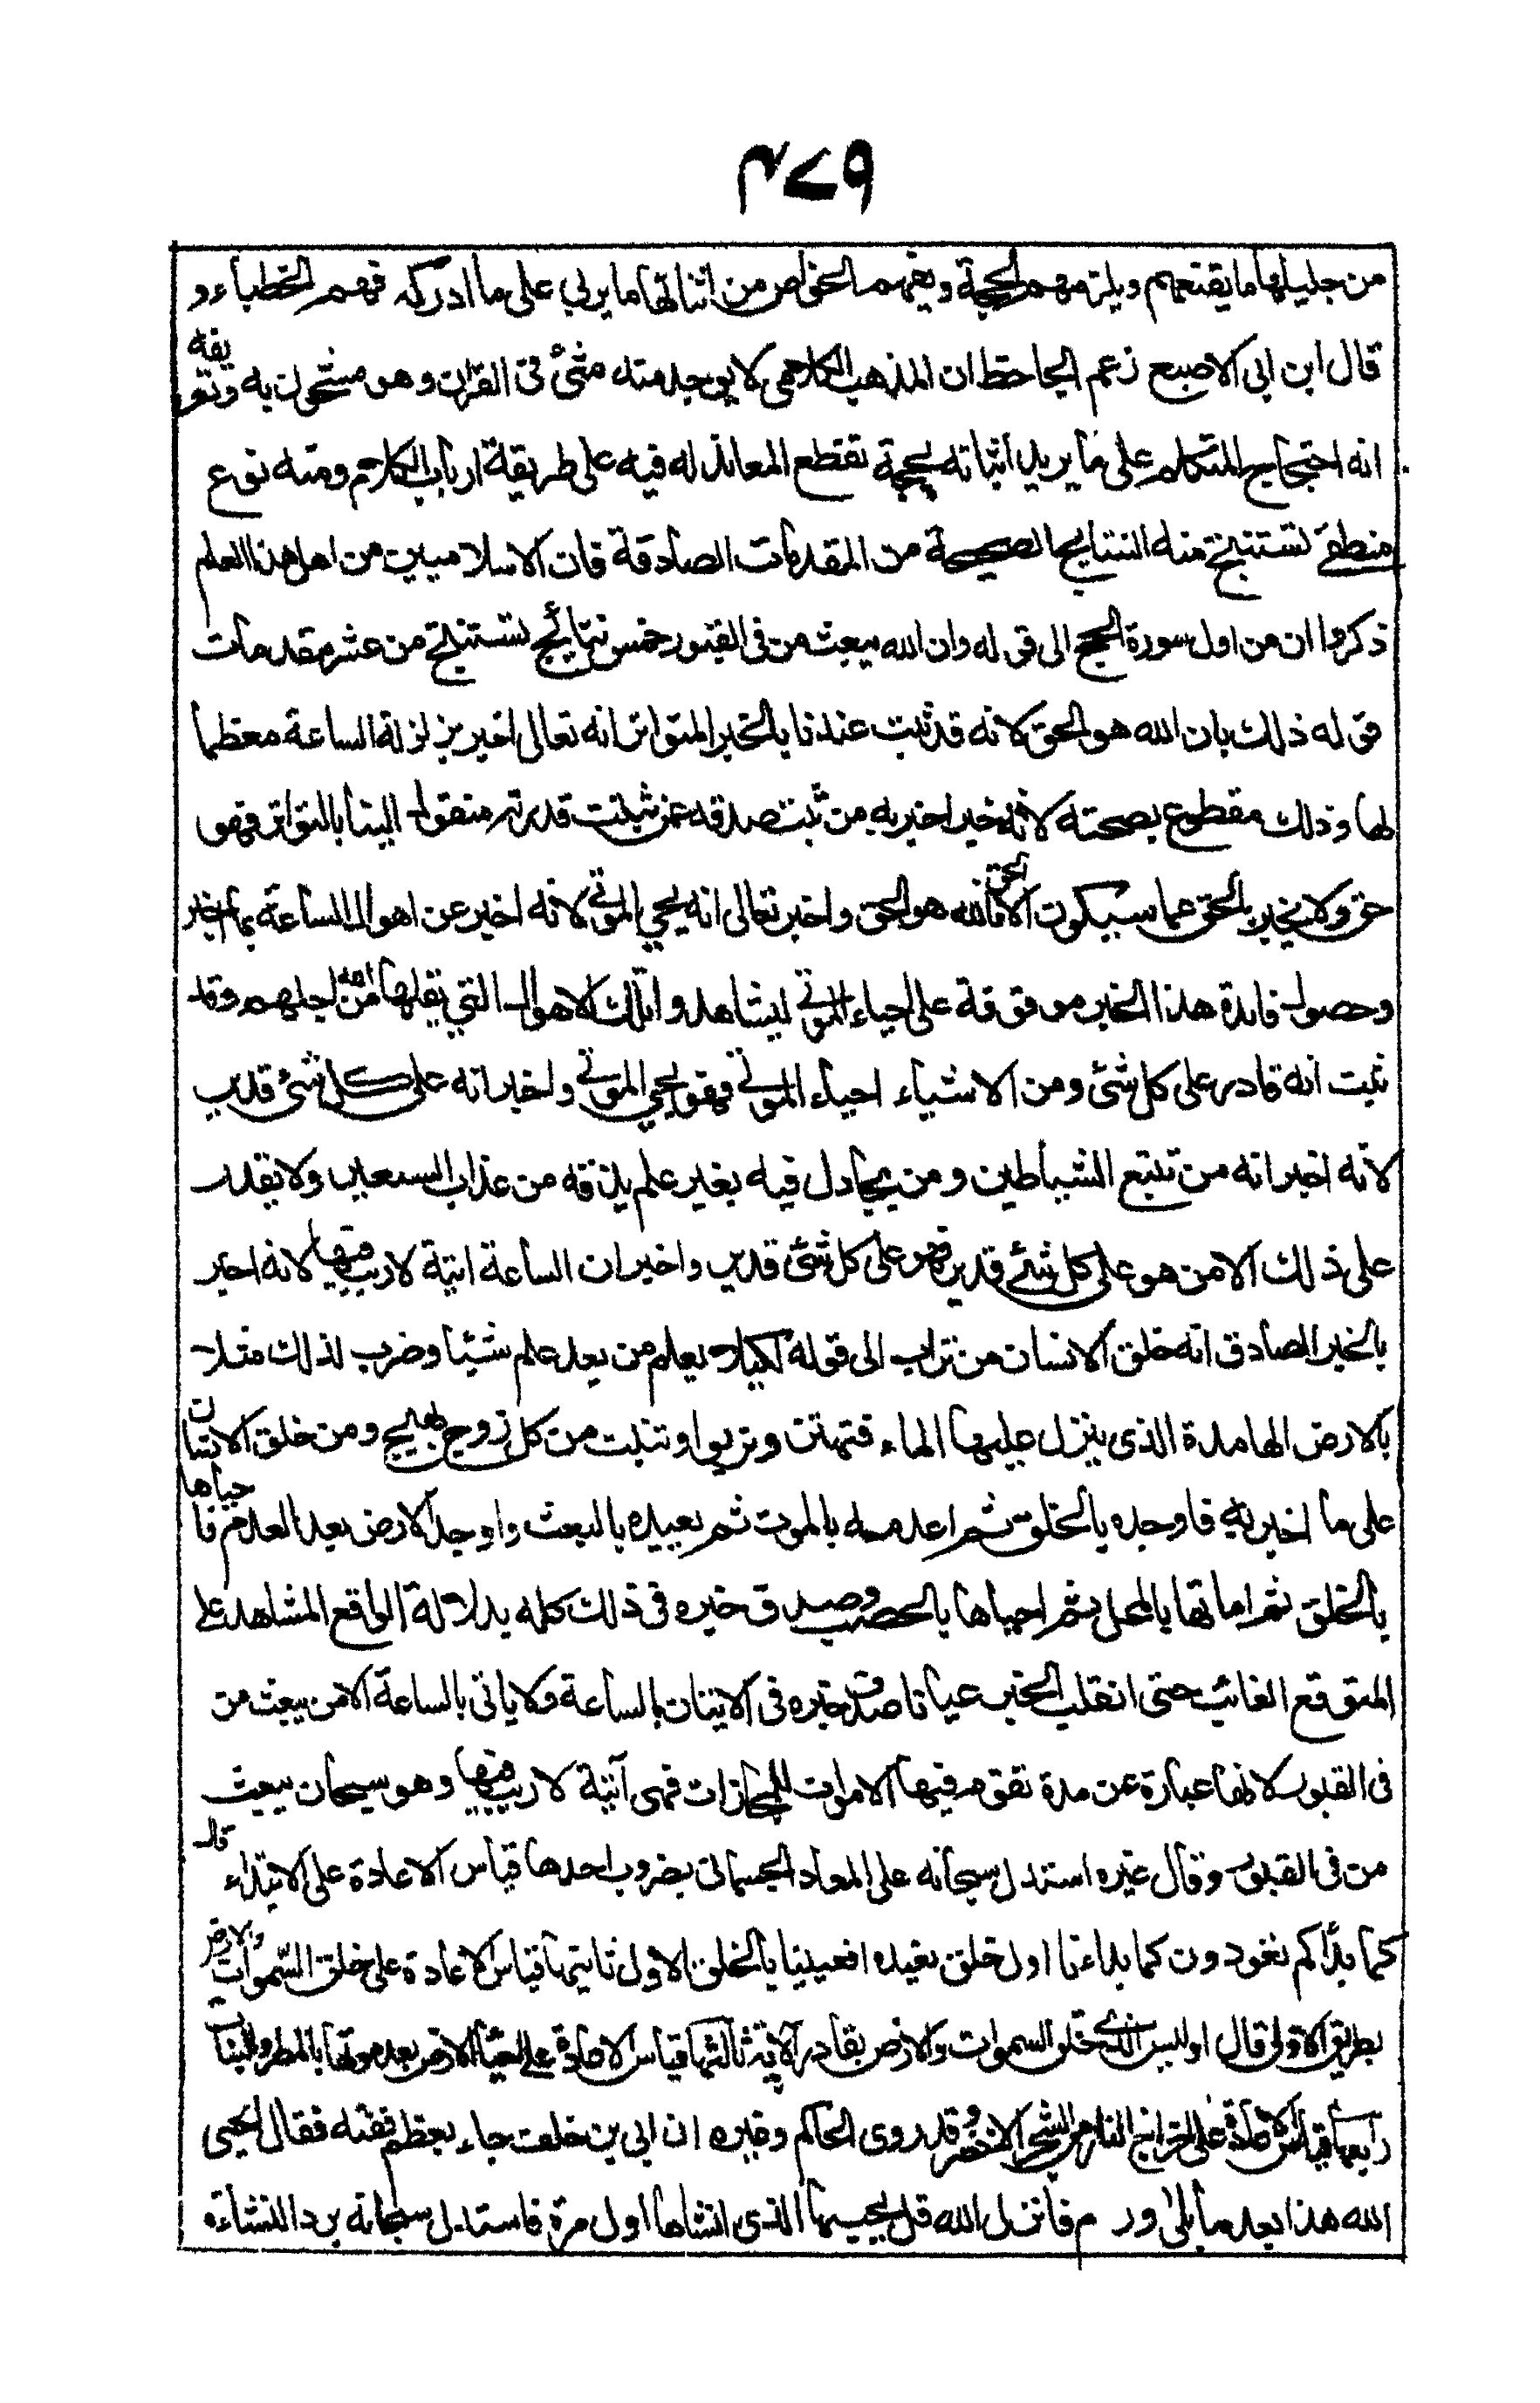 ٩٧٣
من جليلها ما يقنعهم ويلزمهم الحجة ويفهم الخواص من اثنائها ما يربي على ما ادركه فهم الخطباء و
قال ابن ابى الاصبع زعم الجاحظ ان المذهب الكلامى لا يوجد منه شئ فى القران وهو مشحون به وتعريفه
انه احتجاج المتكلم على ما يريد اثباته بحجة تقطع المعاند له فيه على طريقة ارباب الكلام ومنه نوع
منطقى تستنتج منه النتايج الصحيحة من المقدمات الصادقة فان الاسلاميين من اهل هذا العلم
ذكروا ان من اول سورة الحج الى قوله وان الله يبعث من فى القبور خمس نتائج تستنتج من عشر مقدمات
قوله ذلك بان الله هو الحق لانه قد ثبت عندنا بالخبر المتواتر انه تعالى اخبر بزلزلة الساعة معظما
لها وذلك مقطوع بصحته لانه خبر اخبر به من ثبت صدقه عمن ثبتت قدرته منقول الينا بالتواتر فهو
حق ولا يخبر بالحق عما سيكون الا الحق فالله هو الحق واخبر تعالى انه يحيي الموتى لانه اخبر عن اهوال الساعة بما اخبر
وحصول فايدة هذا الخبر موقوفة على احياء الموتى ليشاهدوا تلك الاهوال التي يفعلها الله من اجلهم وقد
ثبت انه قادر على كل شئ ومن الاشياء احياء الموتى فهو يحيي الموتى واخبر انه على كل شئ قدير
لانه اخبر انه من تتبع الشياطين ومن يجادل فيه بغير علم يذقه من عذاب السعير ولا يقدر
على ذلك الا من هو على كل شئ قدير فهو على كل شئ قدير واخبر ان الساعة اتية لا ريب فيها لانه اخبر
بالخبر الصادق انه خلق الانسان من تراب الى قوله لكيلا يعلم من بعد علم شيئا وضرب لذلك مثلا
بالارض الهامدة الذى ينزل عليها الماء فتهتز وتربوا وتنبت من كل زوج بهيج ومن خلق الانسان
على ما اخبر به فاوجده بالخلق ثم اعدمه بالموت ثم يعيده بالبعث واوجد الارض بعد العدم فاحياها
بالخلق ثم اماتها بالمحل ثم احياها بالخصب وصدق خبره فى ذلك كله بدلالة الواقع المشاهد على
المتوقع الغائب حتى انقلب الخبر عيانا صدق خبره فى الاتيان بالساعة ولا ياتى بالساعة الا من يبعث من
فى القبور لانها عبارة عن مدة تقوم فيها الاموات للمجازات فهى آتية لا ريب فيها وهو سبحان يبعث
من فى القبور وقال غيره استدل سبحانه على المعاد الجسمانى بضروب احدها قياس الاعادة على الابتداء قال
كما بدأكم تعودون كما بداءنا اول خلق نعيده افعيينا بالخلق الاول ثانيها قياس الاعادة على خلق السموات والارض
بطريق الاولى قال اوليس الذى خلق السموات والارض بقادر الاية ثالثها قياس الاعادة على احياء الارض بعد موتها بالمطر والنبات
رابعها قياس الاعادة على اخراج النار من الشجر الاخضر وقد روى الحاكم وغيره ان ابى بن خلف جاء بعظم ففته فقال ايحيى
الله هذا بعد ما بلى ورم فانزل الله قل يحييها الذى انشاها اول مرة فاستدل سبحانه برد النشاءة